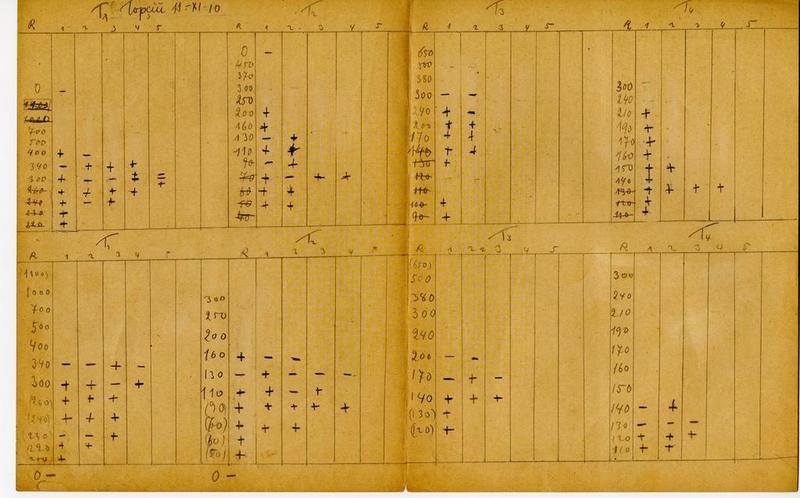 T₁ 11-XI-10 T₂ T₃ T₄
R 1 2 3 4 5 R 1 2 3 4 5 R 1 2 3 4 5 R 1 2 3 4 5
0 -
700
500
400 + -
340 - + + +
300 + + + + =
260 + + + +
240 + - +
+
220 +
0 -
450
370
300
250
200 +
160 +
130 - +
110 + +
90 - +
70 + + + +
60 + +
50 + +
40
650
500
380
300 - -
240 + +
200 + +
170 + +
140 + +
130 +
120
110
100 +
90 +
300 -
240 -
210 +
190 +
170 +
160 +
150 + +
140 + -
130 + + + +
120 +
110 +
T₁ T₂ T₃ T₄
R 1 2 3 4 5 R 1 2 3 4 5 R 1 2 3 4 5 R 1 2 3 4 5
(1100)
1000
700
500
400
340 - - + -
300 + + + +
(260) + + +
(240) + + +
(230) - - +
(220) + +
+
0 -
300
250
200
160 + - -
130 - + - - -
110 + + - +
(90) + + + +
(70) + +
(60) +
(50) +
0 -
(650)
500
380
300
240
200 - -
170 + + -
140 + + +
(130) +
(120) +
300
240
210
190
170
160
150
140 - +
130 - + -
120 + + +
110 + +